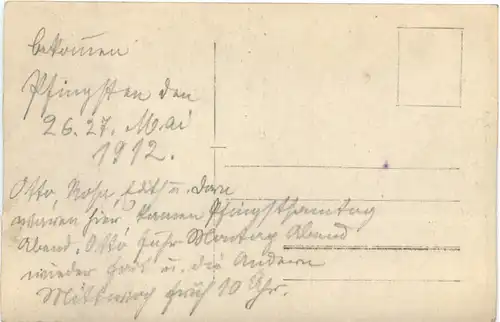 bekommen
Pfingsten den
26. 27. Mai
1912.
Otto, Rosa, Edit u. Dora
waren hier, kamen Pfingstsamstag
Abend. Otto fuhr Montag Abend
wieder fort u. die Andern
Mittwoch früh 10 Uhr.